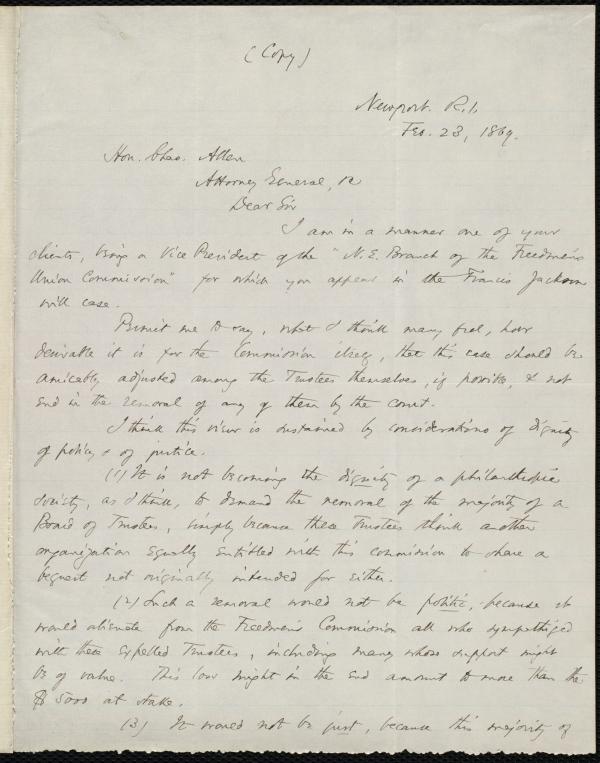 (Copy)
Newport. R.I.
Feb. 23, 1869.
Hon. Chas. Allen
Attorney General, &c
Dear Sir
I am in a manner one of your
clients, being a Vice President of the "N.E. Branch of the Freedmen's
Union Commission" for which you appear in the Francis Jackson
will case.
Permit me to say, what I think many feel, how
desirable it is for the Commission itself, that this case should be
amicably adjusted among the Trustees themselves, if possible, & not
end in the removal of any of them by the court.
I think this view is sustained by considerations of dignity
of policy & of justice.
(1) It is not becoming the dignity of a philanthropic
society, as I think, to demand the removal of the majority of a
Board of Trustees, simply because these Trustees think another
organization equally entitled with this commission to share a
bequest not originally intended for either.
(2) Such a removal would not be politic, because it
would alienate from the Freedmen's Commission all who sympathized
with these expelled Trustees, including many whose support might
be of value. This loss might in the end amount to more than the
$5000 at stake.
(3) It would not be just, because this majority of